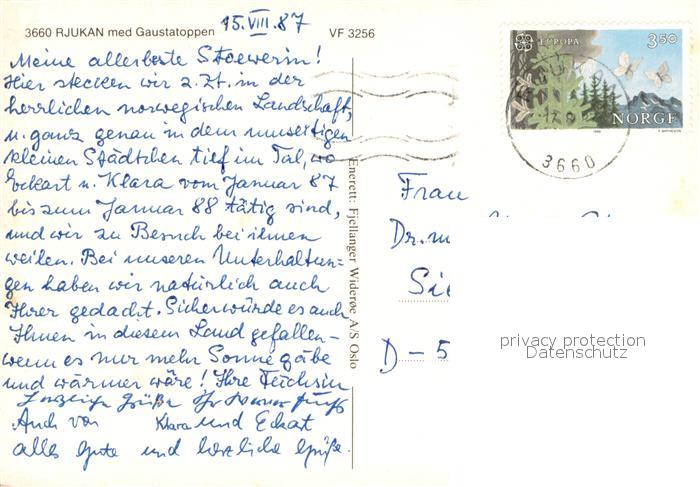 3660 RJUKAN med Gaustatoppen 15.VIII.87 VF 3256
Meine allerbeste Stoewerin!
Hier stecken wir z. Zt. in der
herrlichen norwegischen Landschaft,
u. ganz genau in dem umseitigen
kleinen Städtchen tief im Tal, wo
Eckart u. Klara vom Januar 87
bis zum Januar 88 tätig sind,
und wir zu Besuch bei ihnen
weilen. Bei unseren Unterhaltun-
gen haben wir natürlich auch
Ihrer gedacht. Sicher würde es auch
Ihnen in diesem Land gefallen –
wenn es nur mehr Sonne gäbe
und wärmer wäre! Ihre Füchsin
Herzliche Grüße Ihr
Auch von Klara und Eckart
alles Gute und herzliche Grüße.
Enerett: Fjellanger Widerøe A/S Oslo
EUROPA 3.50
NORGE
3660
Frau
Dr. m
Sie
D – 5
privacy protection
Datenschutz